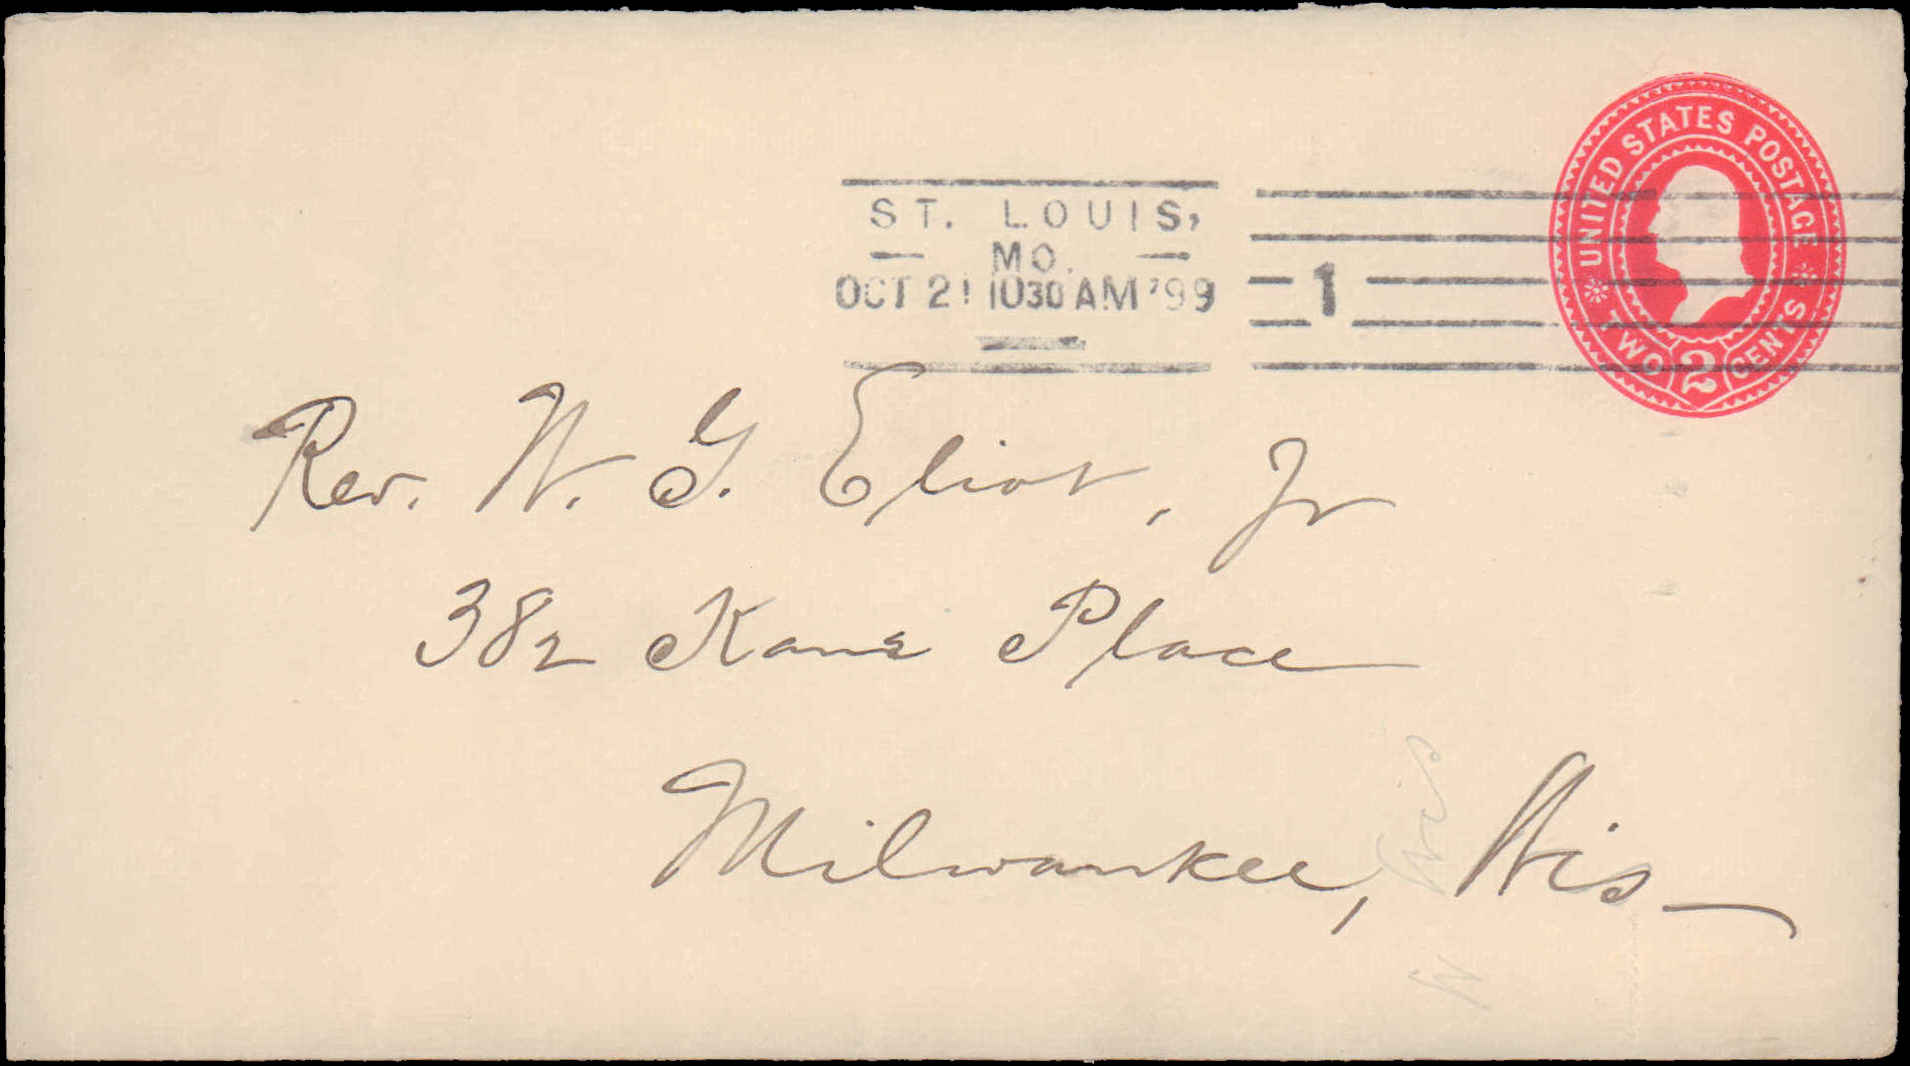 UNITED STATES POSTAGE
TWO 2 CENTS
ST. LOUIS,
MO.
OCT 21 1030 AM '99
1
Rev. W. G. Eliot, Jr
382 Kane Place
Milwaukee, Wis
W Wis